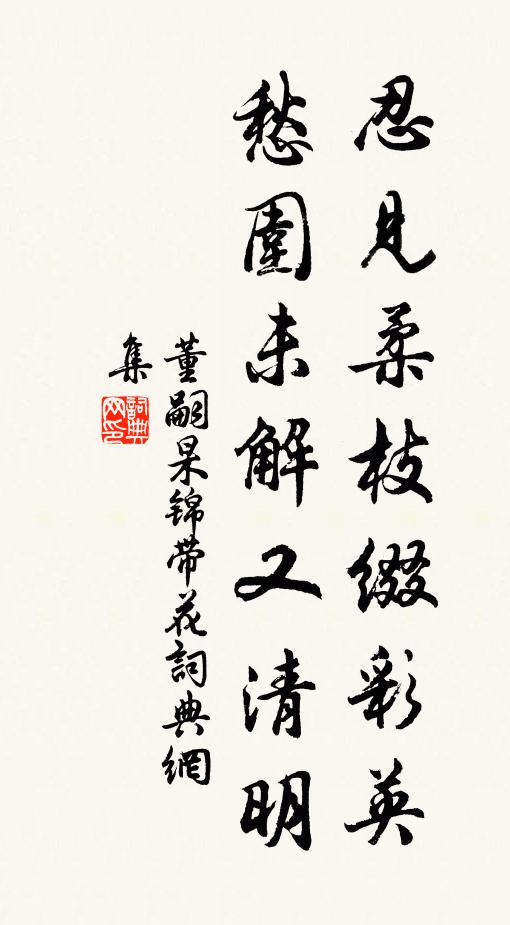 忍見柔枝綴彩英
愁圍未解又清明
董嗣杲锦带花詞典網
集
詞典网印